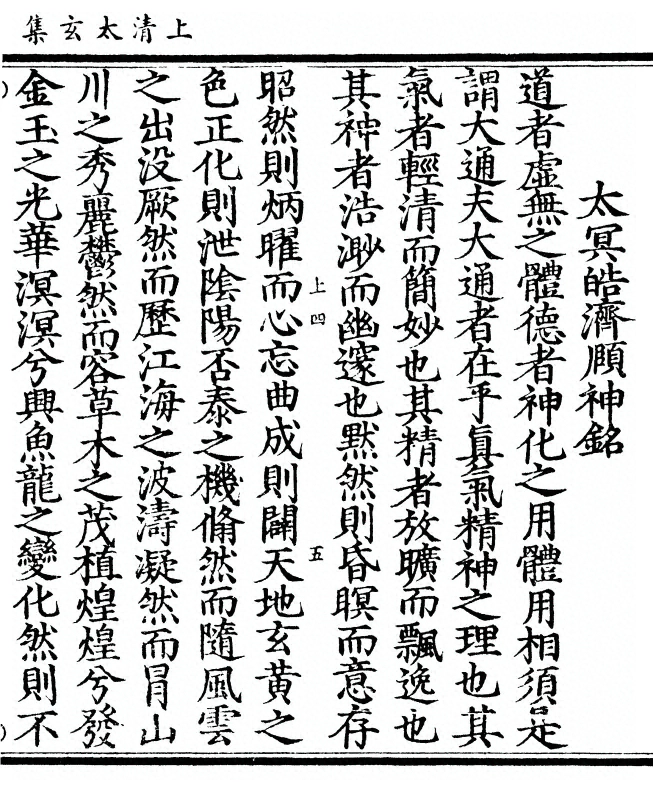 上清太玄集
太冥皓濟頤神銘
道者虛無之體德者神化之用體用相須是
謂大通夫大通者在乎真氣精神之理也其
氣者輕清而簡妙也其精者放曠而飄逸也
其神者浩渺而幽邃也默然則昏暝而意存
上四
五
昭然則炳曜而心忘曲成則闢天地玄黃之
色正化則泄陰陽否泰之機脩然而隨風雲
之出没厥然而歷江海之波濤凝然而冐山
川之秀麗鬱然而容草木之茂植煌煌兮發
金玉之光華溟溟兮興魚龍之變化然則不